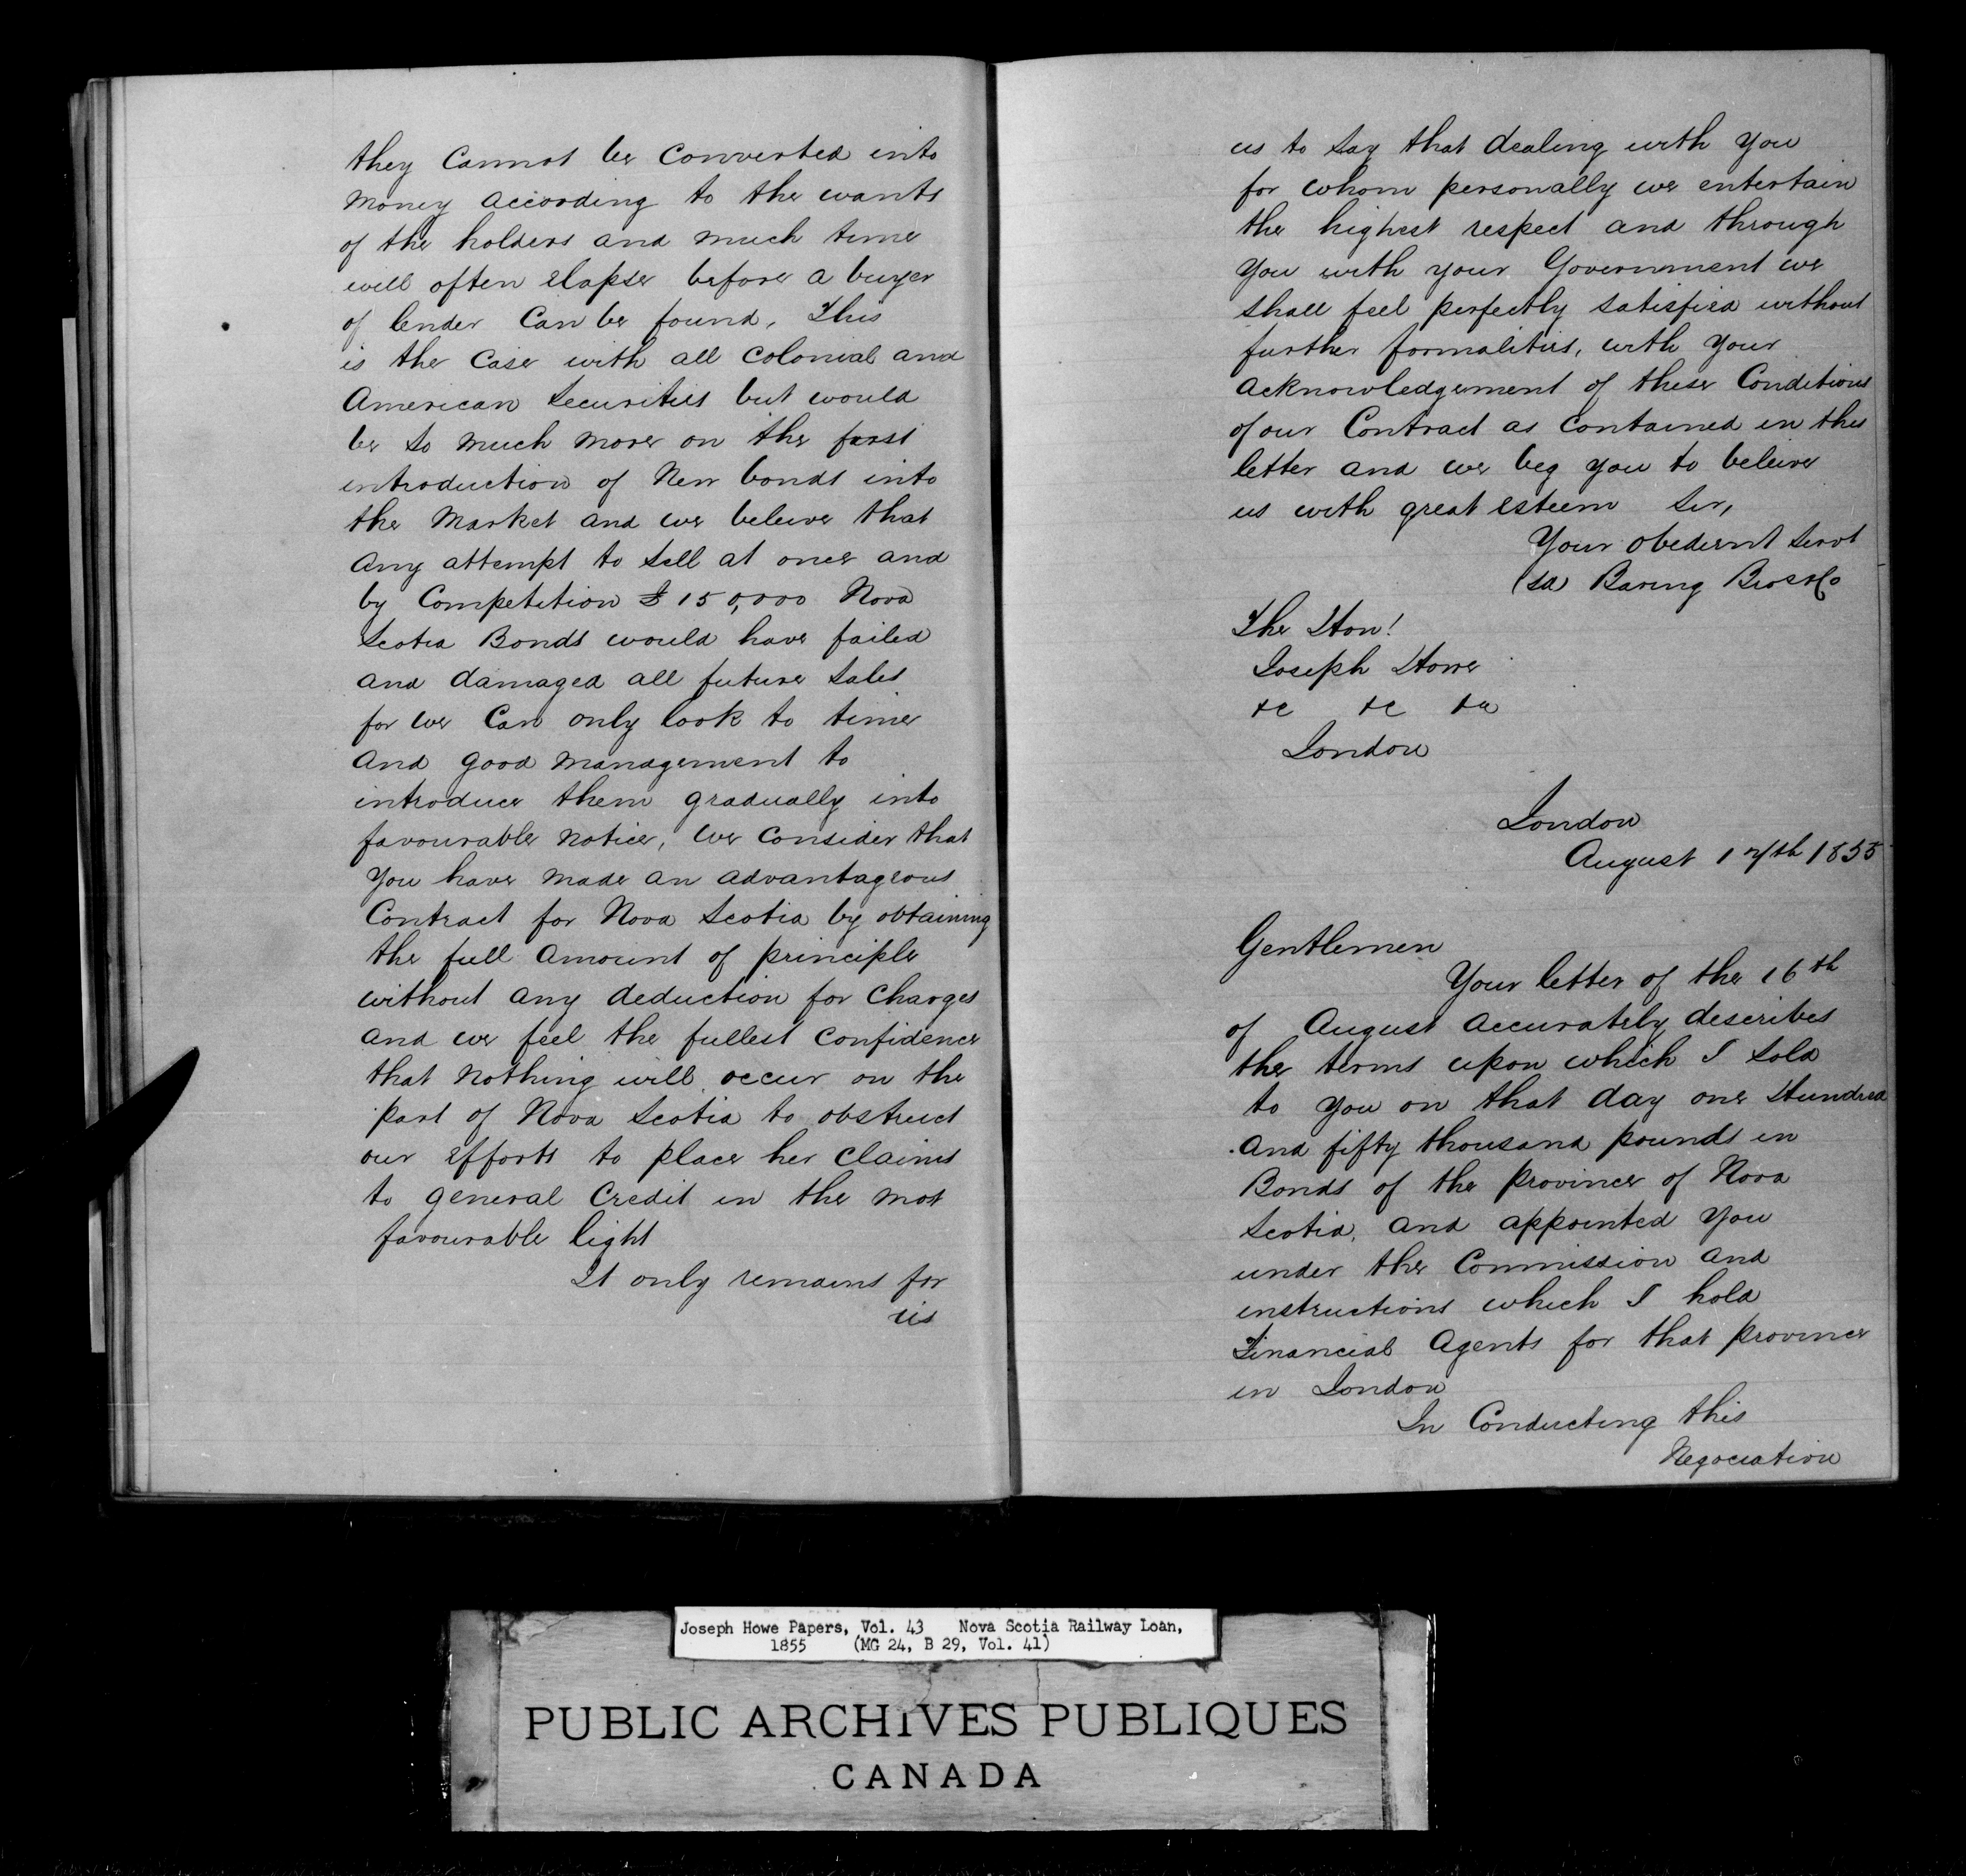 they Cannot be Converted into
Money according to the wants
of the holders and much time
will often elapse before a buyer
of lender Can be found, This
is the Case with all Colonial and
American Securities but would
be so much more on the first
introduction of New bonds into
the Market and we beleive that
any attempt to sell at once and
by Competition £150,000 Nova
Scotia Bonds would have failed
and damaged all future sales
for we Can only look to time
and good management to
introduce them gradually into
favourable notice, we Consider that
you have made an advantageous
Contract for Nova Scotia by obtaining
the full amount of principle
without any deduction for Charges
and we feel the fullest Confidence
that nothing will occur on the
part of Nova Scotia to obstruct
our efforts to place her Claims
to general Credit in the most
favourable light
It only remains for
us
us to say that dealing with you
for whom personally we entertain
the highest respect and through
you with your Government we
shall feel perfectly satisfied without
further formalities, with your
acknowledgement of these Conditions
of our Contract as Contained in this
letter and we beg you to beleive
us with great esteem Sir,
Your obedient Servt
(sd Baring Bros & Co
The Hon!
Joseph Howe
&c &c &c
London
London
August 17th 1855
Gentlemen
Your letter of the 16th
of August accurately describes
the terms upon which I sold
to you on that day one Hundred
and fifty thousand pounds in
Bonds of the Province of Nova
Scotia, and appointed you
under the Commission and
instructions which I hold
Financial Agents for that Province
in London
In Conducting this
Negociation
Joseph Howe Papers, Vol. 43 Nova Scotia Railway Loan,
1855 (MG 24, B 29, Vol. 41)
PUBLIC ARCHIVES PUBLIQUES
CANADA